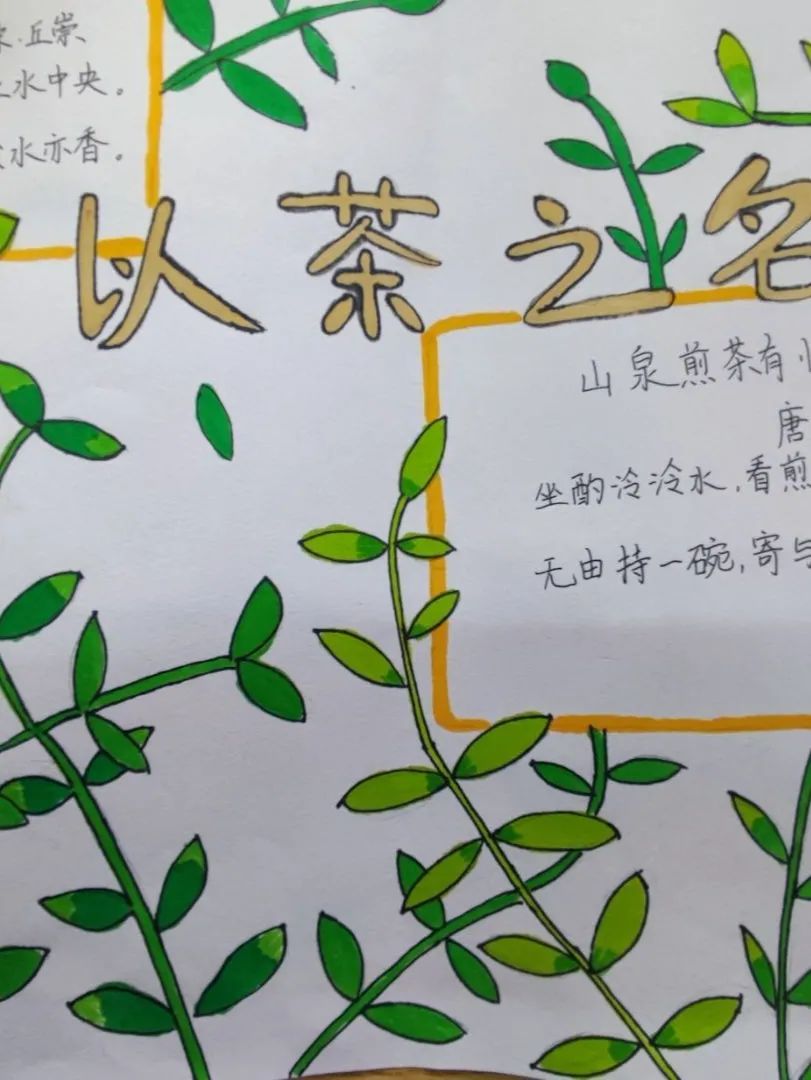 丘崇
水中央。
水亦香。
以茶之名
山泉煎茶有
唐
坐酌泠泠水,看煎
无由持一碗,寄与